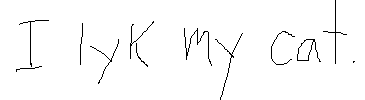 I lyk my cat.